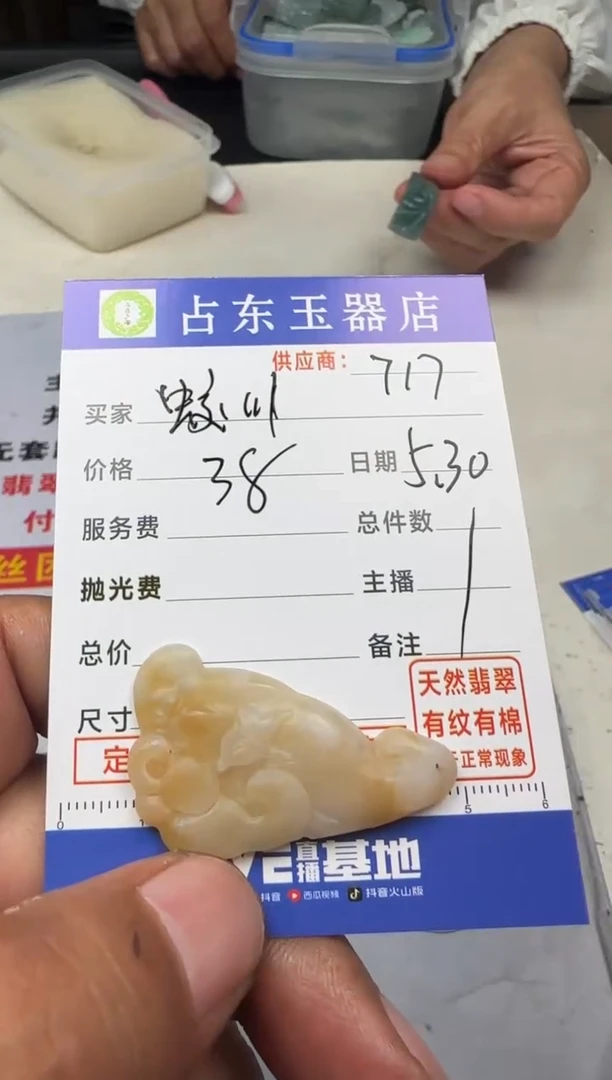 占东玉器店
供应商: 717
买家 蚁川
价格 38 日期 5.30
服务费 总件数
抛光费 主播
总价 备注
尺寸
天然翡翠
有纹有棉
正常现象
定
0 5 6
直播基地
抖音 西瓜视频 抖音火山版
无套
翡翠
付